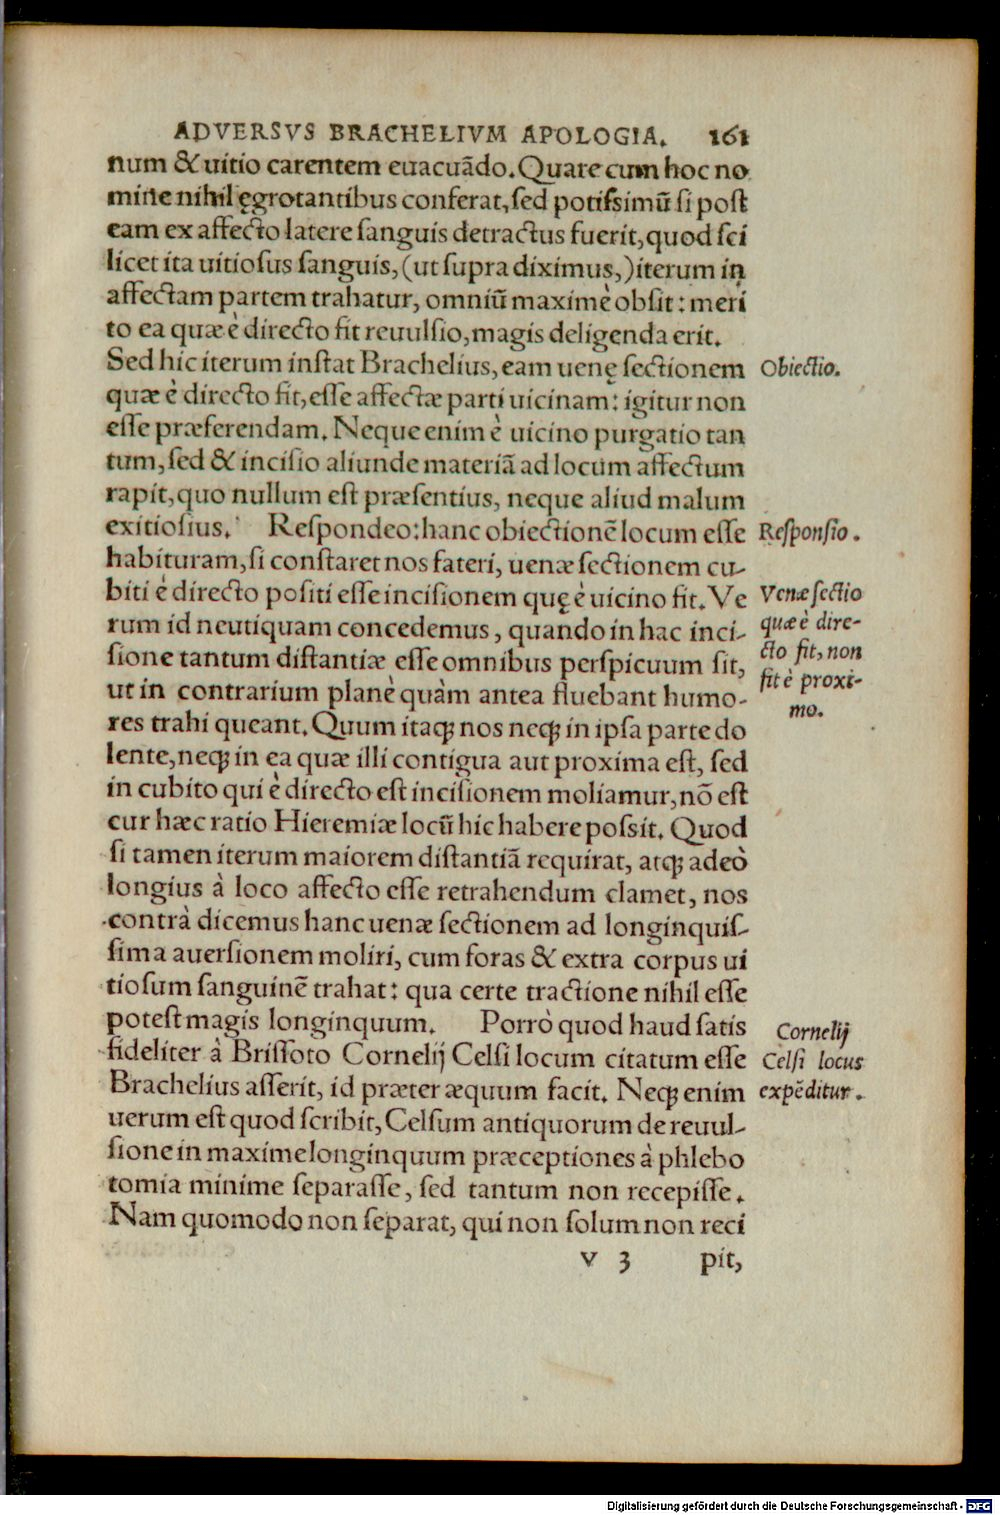 ADVERSVS BRACHELIVM APOLOGIA. 161
num & uitio carentem euacuādo. Quare cum hoc no
mine nihil ęgrotantibus conferat, sed potissimū si post
eam ex affecto latere sanguis detractus fuerit, quod sci
licet ita uitiosus sanguis, (ut supra diximus,) iterum in
affectam partem trahatur, omniū maximè obsit: meri
to ea quæ è directo fit reuulsio, magis deligenda erit.
Sed hic iterum instat Brachelius, eam uenę sectionem
Obiectio.
quæ è directo fit, esse affectæ parti uicinam: igitur non
esse præferendam. Neque enim è uicino purgatio tan
tum, sed & incisio aliunde materiā ad locum affectum
rapit, quo nullum est præsentius, neque aliud malum
exitiosius. Respondeo: hanc obiectionē locum esse
Responsio.
habituram, si constaret nos fateri, uenæ sectionem cu-
biti è directo positi esse incisionem quę è uicino fit. Ve
rum id neutiquam concedemus, quando in hac inci-
sione tantum distantiæ esse omnibus perspicuum sit,
ut in contrarium planè quàm antea fluebant humo-
res trahi queant. Quum itaq; nos neq; in ipsa parte do
Venæ sectio
quæ è dire-
cto fit, non
fit è proxi-
mo.
lente, neq; in ea quæ illi contigua aut proxima est, sed
in cubito qui è directo est incisionem moliamur, nō est
cur hæc ratio Hieremiæ locū hic habere possit. Quod
si tamen iterum maiorem distantiā requirat, atq; adeò
longius à loco affecto esse retrahendum clamet, nos
contrà dicemus hanc uenæ sectionem ad longinquis-
sima auersionem moliri, cum foras & extra corpus ui
tiosum sanguinē trahat: qua certe tractione nihil esse
potest magis longinquum. Porrò quod haud satis
fideliter à Brissoto Cornelij Celsi locum citatum esse
Brachelius asserit, id præter æquum facit. Neq; enim
Cornelij
Celsi locus
expēditur.
uerum est quod scribit, Celsum antiquorum de reuul-
sione in maxime longinquum præceptiones à phlebo
tomia minime separasse, sed tantum non recepisse.
Nam quomodo non separat, qui non solum non reci
v 3 pit,
Digitalisierung gefördert durch die Deutsche Forschungsgemeinschaft - DFG